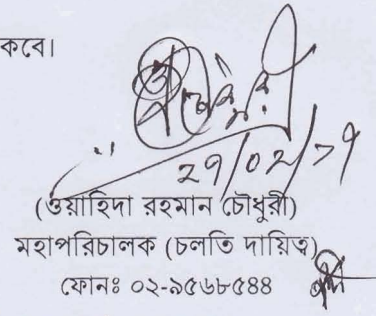 কবে।
২৭/০২/১৭
(ওয়াহিদা রহমান চৌধুরী)
মহাপরিচালক (চলতি দায়িত্ব)
ফোনঃ ০২-৯৫৬৮৫৪৪